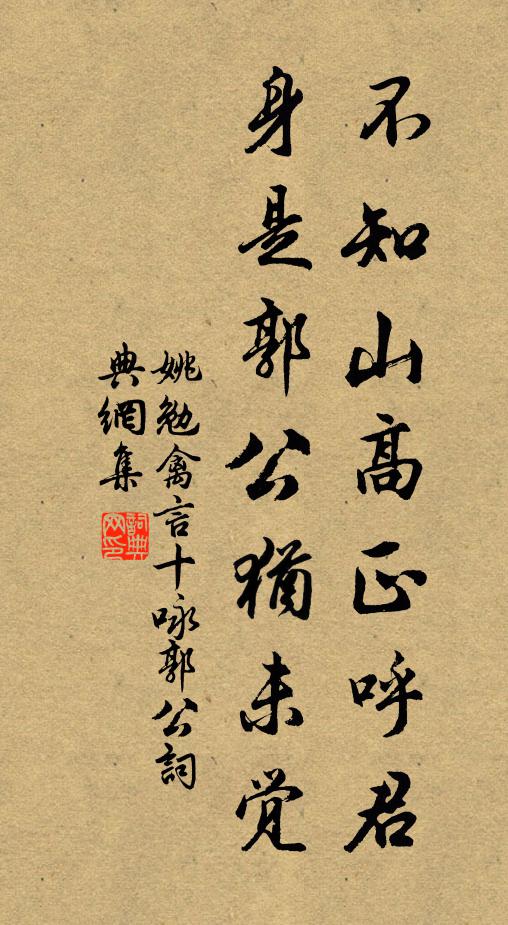 不知山高正呼君
身是郭公猶未覚
姚勉禽言十咏郭公詞
典網集
詞典
网印